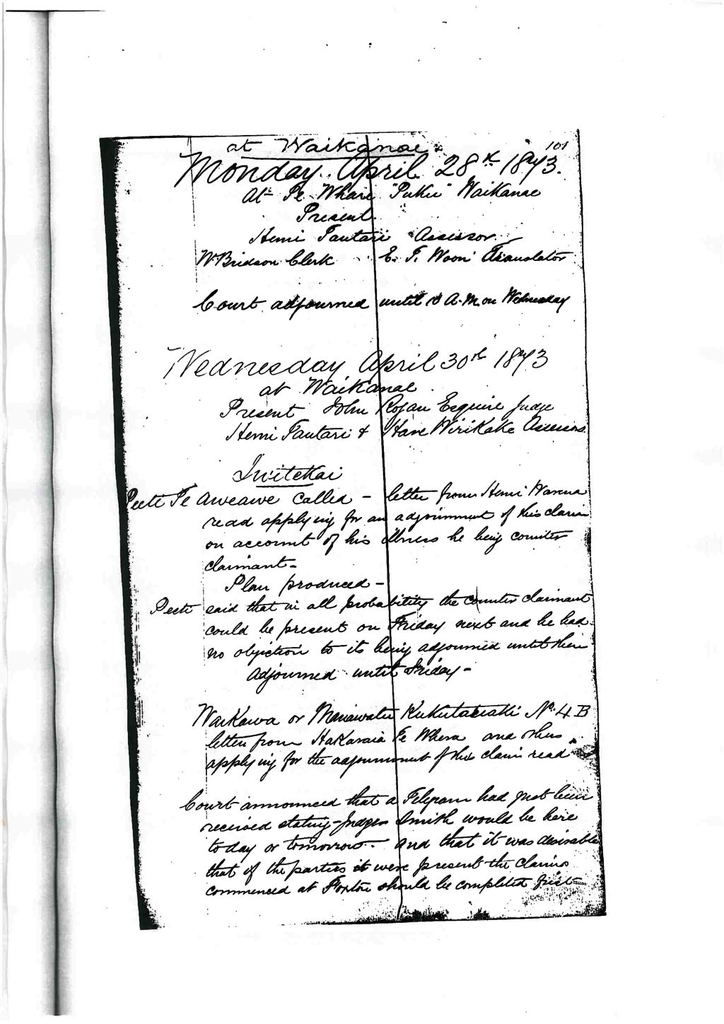 101
at Waikanae
Monday April 28th 1873.
At Te Whare "Puke" Waikanae
Present
Hemi Tautari Assessor
W Bridson Clerk E. T. Woon Translator
Court adjourned until 10 A.M on Wednesday
Wednesday April 30th 1873
at Waikanae
Present John Rogan Esquire Judge
Hemi Tautari & Hare Wirikake Assessors
Iwitekai
Peeti Te Aweawe called – letter from Hemi Warena
read applying for an adjournment of this claim
on account of his illness he being counter
claimant –
Plan produced –
Peeti said that in all probability the counter claimant
could be present on Friday next and he had
no objection to its being adjourned until then
Adjourned until Friday –
Waikawa or Manawatu Kukutauaki No. 4 B
letter from Hakaraia Te Whena and others
applying for the adjournment of this claim read
Court announced that a Telegram had just been
received stating Judge Smith would be here
to day or tomorrow – and that it was desirable
that if the parties it were present the claims
commenced at Foxton should be completed first